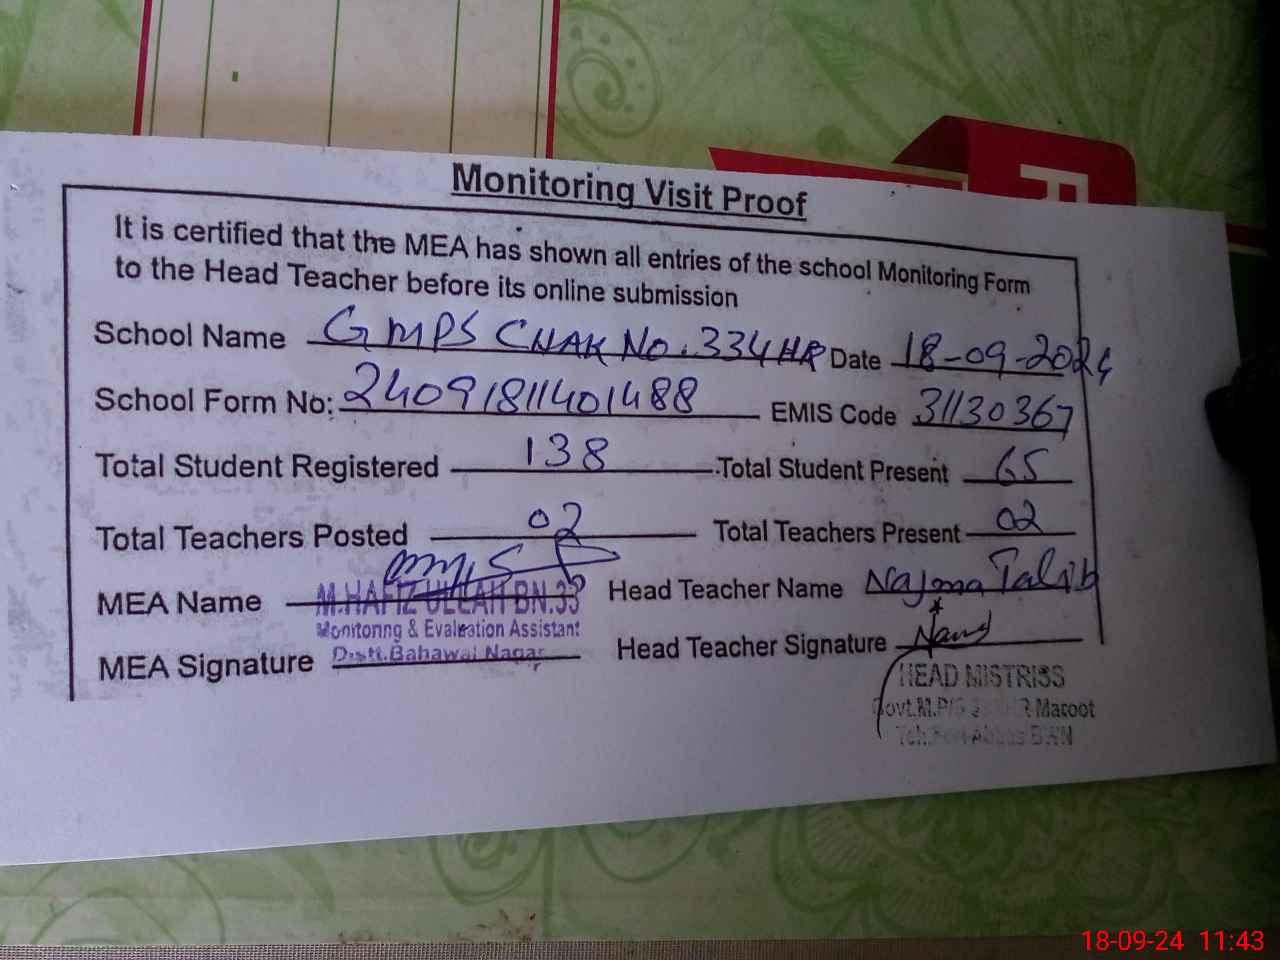 Monitoring Visit Proof
It is certified that the MEA has shown all entries of the school Monitoring Form
to the Head Teacher before its online submission
School Name GMPS CHAK No. 334HR Date 18-09-2024
School Form No: 24091811401488 EMIS Code 31130367
Total Student Registered 138 Total Student Present 65
Total Teachers Posted 02 Total Teachers Present 02
MEA Name M.HAFIZ ULLAH BN.33 Head Teacher Name Najma Talib
Monitoring & Evaluation Assistant
MEA Signature Distt.Bahawal Nagar Head Teacher Signature
HEAD MISTRISS
Govt.M.P/S HR Maroot
Teh.Fort Abbas BWN
18-09-24 11:43